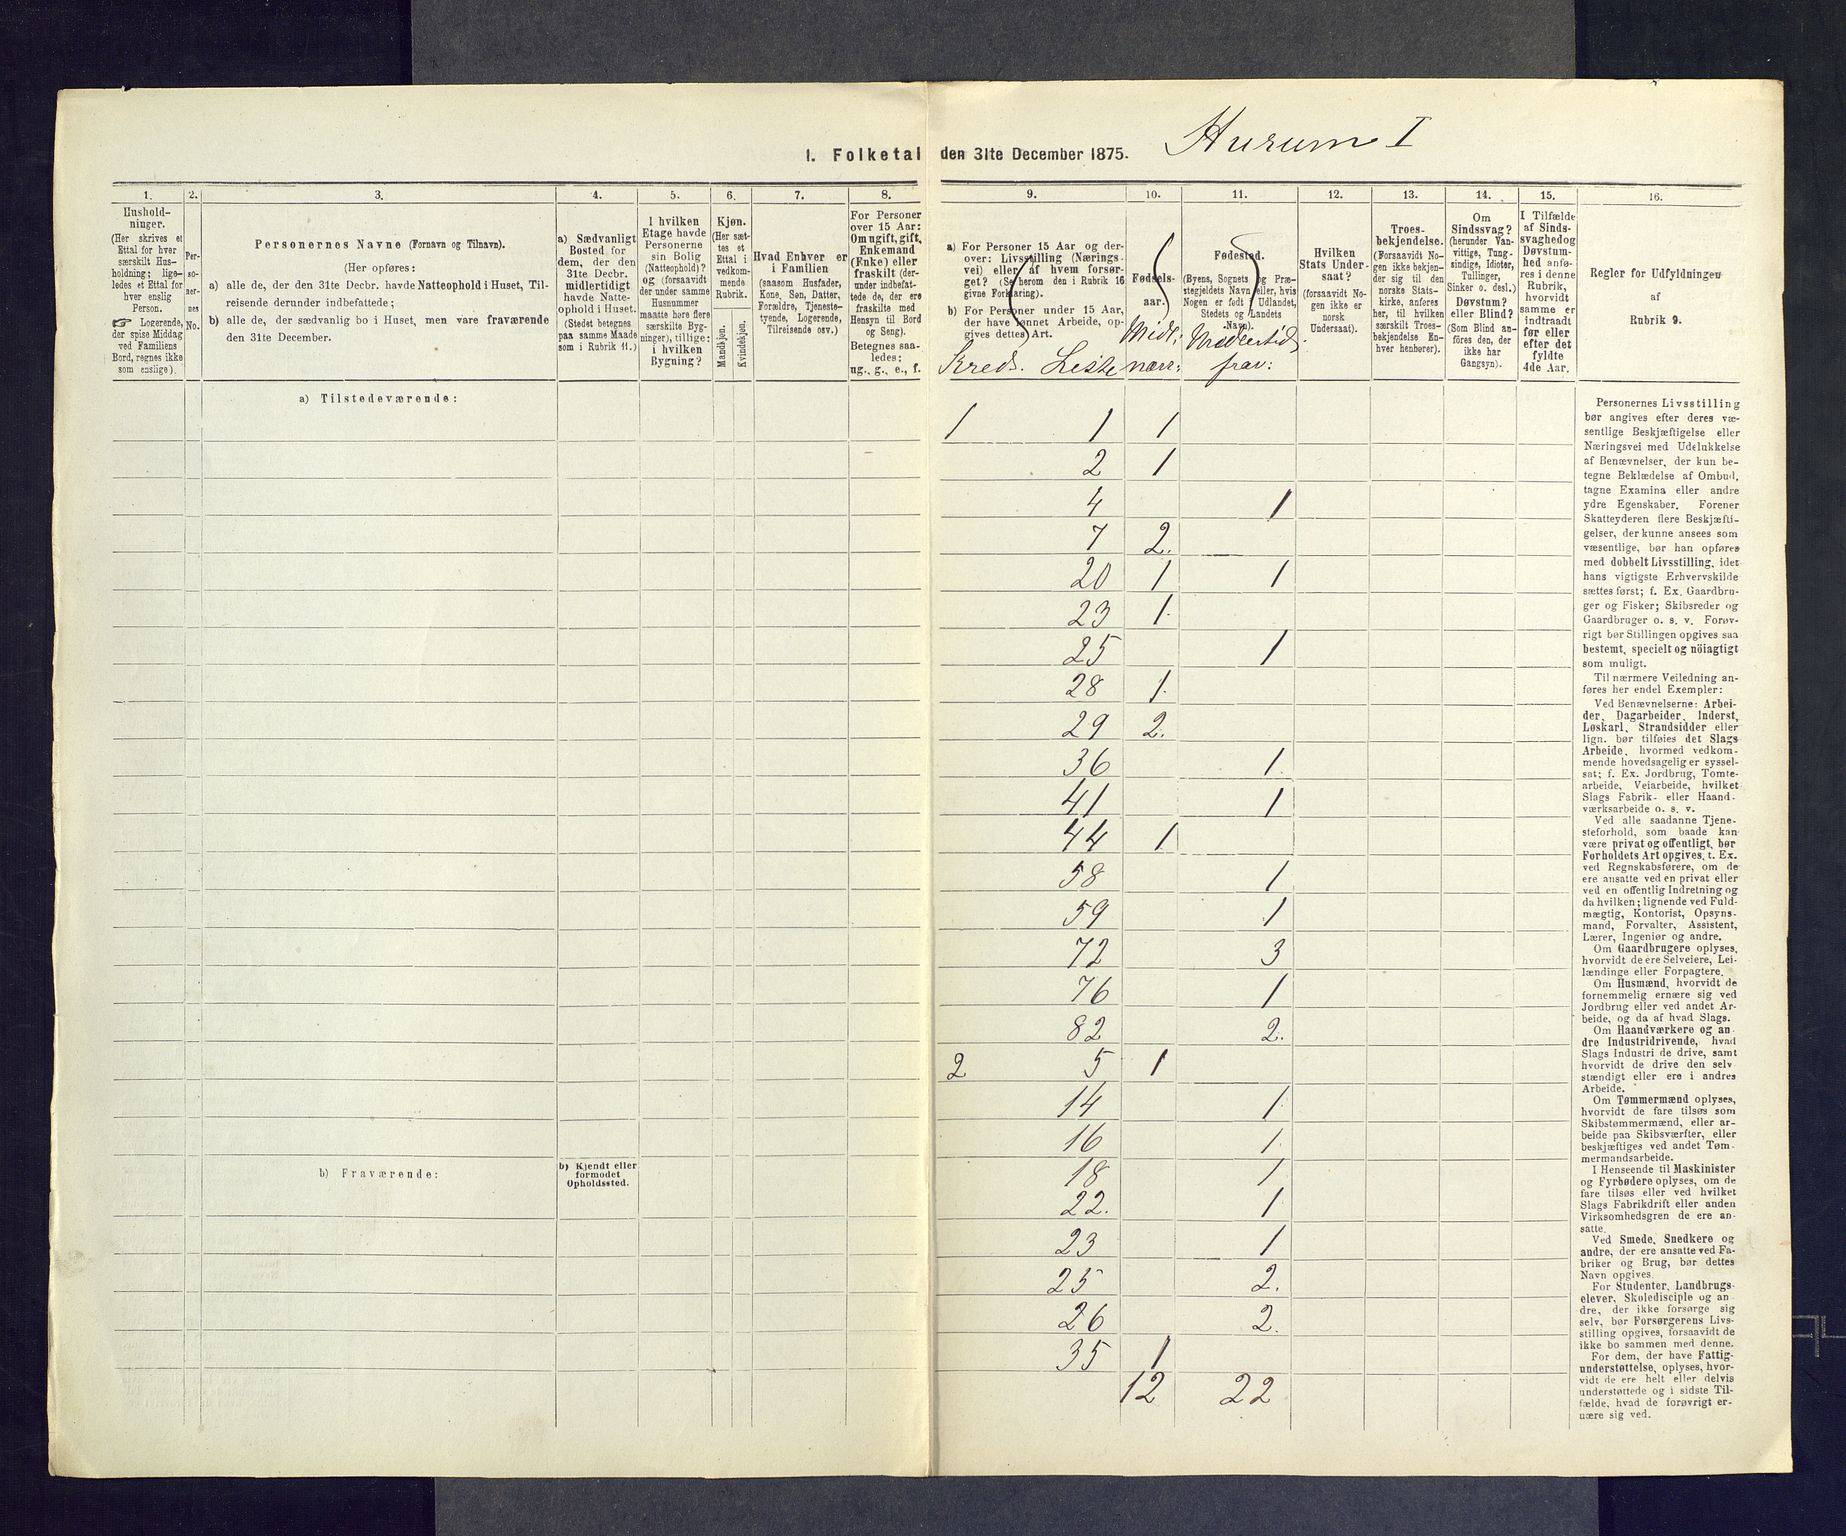 Hurum I
1. Folketal den 31te December 1875.
1.
2.
3.
4.
5.
6.
7.
8.
9.
10.
11.
12.
13.
14.
15.
16.
Hushold-
ninger.
(Her skrives et
Ettal for hver
særskilt Hus-
holdning; lige-
ledes et Ettal for
hver enslig
Person.
☞ Logerende,
der spise Middag
ved Familiens
Bord, regnes ikke
som enslige).
Per-
so-
ner-
nes
No.
Personernes Navne (Fornavn og Tilnavn).
(Her opføres:
a) alle de, der den 31te Decbr. havde Natteophold i Huset, Til-
reisende derunder indbefattede;
b) alle de, der sædvanlig bo i Huset, men vare fraværende
den 31te December.
a) Sædvanligt
Bosted for
dem, der den
31te Decbr.
midlertidigt
havde Natte-
ophold i Huset.
(Stedet betegnes
paa samme Maade
som i Rubrik 11.)
I hvilken
Etage havde
Personerne
sin Bolig
(Natteophold)?
og (forsaavidt
der under samme
Husnummer
maatte høre flere
særskilte Byg-
ninger), tillige:
i hvilken
Bygning?
Kjøn.
(Her sæt-
tes et
Ettal i
vedkom-
mende
Rubrik.
Mandkjøn.
Kvindekjøn.
Hvad Enhver er
i Familien
(saasom Husfader,
Kone, Søn, Datter,
Forældre, Tjeneste-
tyende, Logerende,
Tilreisende osv.)
For Personer
over 15 Aar:
Om ugift, gift,
Enkemand
(Enke) eller
fraskilt (der-
under indbefat-
tede de, der ere
fraskilte med
Hensyn til Bord
og Seng).
Betegnes saa-
ledes:
ug., g., e., f.
a) For Personer 15 Aar og der-
over: Livsstilling (Nærings-
vei) eller af hvem forsør-
get? (Se herom den i Rubrik 16
givne Forklaring).
b) For Personer under 15 Aar,
der have lønnet Arbeide, op-
gives dettes Art.
Kreds. Liste
Fødsels-
aar.
Midl.
nærv:
Fødested.
(Byens, Sognets og Præ-
stegjeldets Navn eller, hvis
Nogen er født i Udlandet,
Stedets og Landets
Navn).
Midlertid.
frav:
Hvilken
Stats Under-
saat?
(forsaavidt No-
gen ikke er
norsk
Undersaat).
Troes-
bekjendelse.
(Forsaavidt No-
gen ikke bekjen-
der sig til den
norske Stats-
kirke, anføres
her, til hvilken
særskilt Troes-
bekjendelse En-
hver henhører).
Om
Sindssvag?
(herunder Van-
vittige, Tung-
sindige, Idioter,
Tullinger,
Sinker o. desl.)
Døvstum?
eller Blind?
(Som Blind an-
føres den, der
ikke har
Gangsyn).
I Tilfælde
af Sinds-
svaghed og
Døvstum-
hed anfø-
res i denne
Rubrik,
hvorvidt
samme er
indtraadt
før eller
efter det
fyldte
4de Aar.
Regler for Udfyldningen
af
Rubrik 9.
a) Tilstedeværende:
1 1 1
2 1
4 1
7 2.
20 1 1
23 1.
25 1
28 1.
29 2.
36 1.
41 1
44 1.
58 1.
59 1
72 3
76 1
82 2.
2 5 1
14 1.
16 1.
18 1.
22. 1.
23 1
25 2.
26 2.
35 1
12 22
b) Fraværende:
b) Kjendt eller
formodet
Opholdssted.
Personernes Livsstilling
bør angives efter deres væ-
sentlige Beskjæftigelse eller
Næringsvei med Udelukkelse
af Benævnelser, der kun be-
tegne Beklædelse af Ombud,
tagne Examina eller andre
ydre Egenskaber. Forener
Skatteyderen flere Beskjæfti-
gelser, der kunne ansees som
væsentlige, bør han opføres
med dobbelt Livsstilling, idet
hans vigtigste Erhvervskilde
sættes først; f. Ex. Gaardbru-
ger og Fisker; Skibsreder og
Gaardbruger o. s. v. Forøv-
rigt bør Stillingen opgives saa
bestemt, specielt og nöiagtigt
som muligt.
Til nærmere Veiledning an-
føres her endel Exempler:
Ved Benævnelserne: Arbei-
der, Dagarbeider, Inderst,
Løskarl, Strandsidder eller
lign. bør tilføies det Slags
Arbeide, hvormed vedkom-
mende hovedsagelig er syssel-
sat; f. Ex. Jordbrug, Tomte-
arbeide, Veiarbeide, hvilket
Slags Fabrik- eller Haand-
værksarbeide o. s. v.
Ved alle saadanne Tjene-
steforhold, som baade kan
være privat og offentligt, bør
Forholdets Art opgives, t. Ex.
ved Regnskabsførere, om de
ere ansatte ved en privat eller
ved en offentlig Indretning og
da hvilken; lignende ved Fuld-
mægtig, Kontorist, Opsyns-
mand, Forvalter, Assistent,
Lærer, Ingeniør og andre.
Om Gaardbrugere oplyses,
hvorvidt de ere Selveiere, Lei-
lændinge eller Forpagtere.
Om Husmænd, hvorvidt de
fornemmelig ernære sig ved
Jordbrug eller ved andet Ar-
beide, og da af hvad Slags.
Om Haandværkere og an-
dre Industridrivende, hvad
Slags Industri de drive, samt
hvorvidt de drive den selv-
stændigt eller ere i andres
Arbeide.
Om Tømmermænd oplyses,
hvorvidt de fare tilsøs som
Skibstømmermænd, eller ar-
beide paa Skibsværfter, eller
beskjæftiges ved andet Tøm-
mermandsarbeide.
I Henseende til Maskinister
og Fyrbødere oplyses, om de
fare tilsøs eller ved hvilket
Slags Fabrikdrift eller anden
Virksomhedsgren de ere an-
satte.
Ved Smede, Snedkere og
andre, der ere ansatte ved Fa-
briker og Brug, bør dettes
Navn opgives.
For Studenter, Landbrugs-
elever, Skoledisciple og an-
dre, der ikke forsørge sig
selv, bør Forsørgerens Livs-
stilling opgives, forsaavidt de
ikke bo sammen med denne.
For dem, der have Fattig-
understøttelse, oplyses, hvor-
vidt de ere helt eller delvis
understøttede og i sidste Til-
fælde, hvad de forøvrigt er-
nære sig ved.